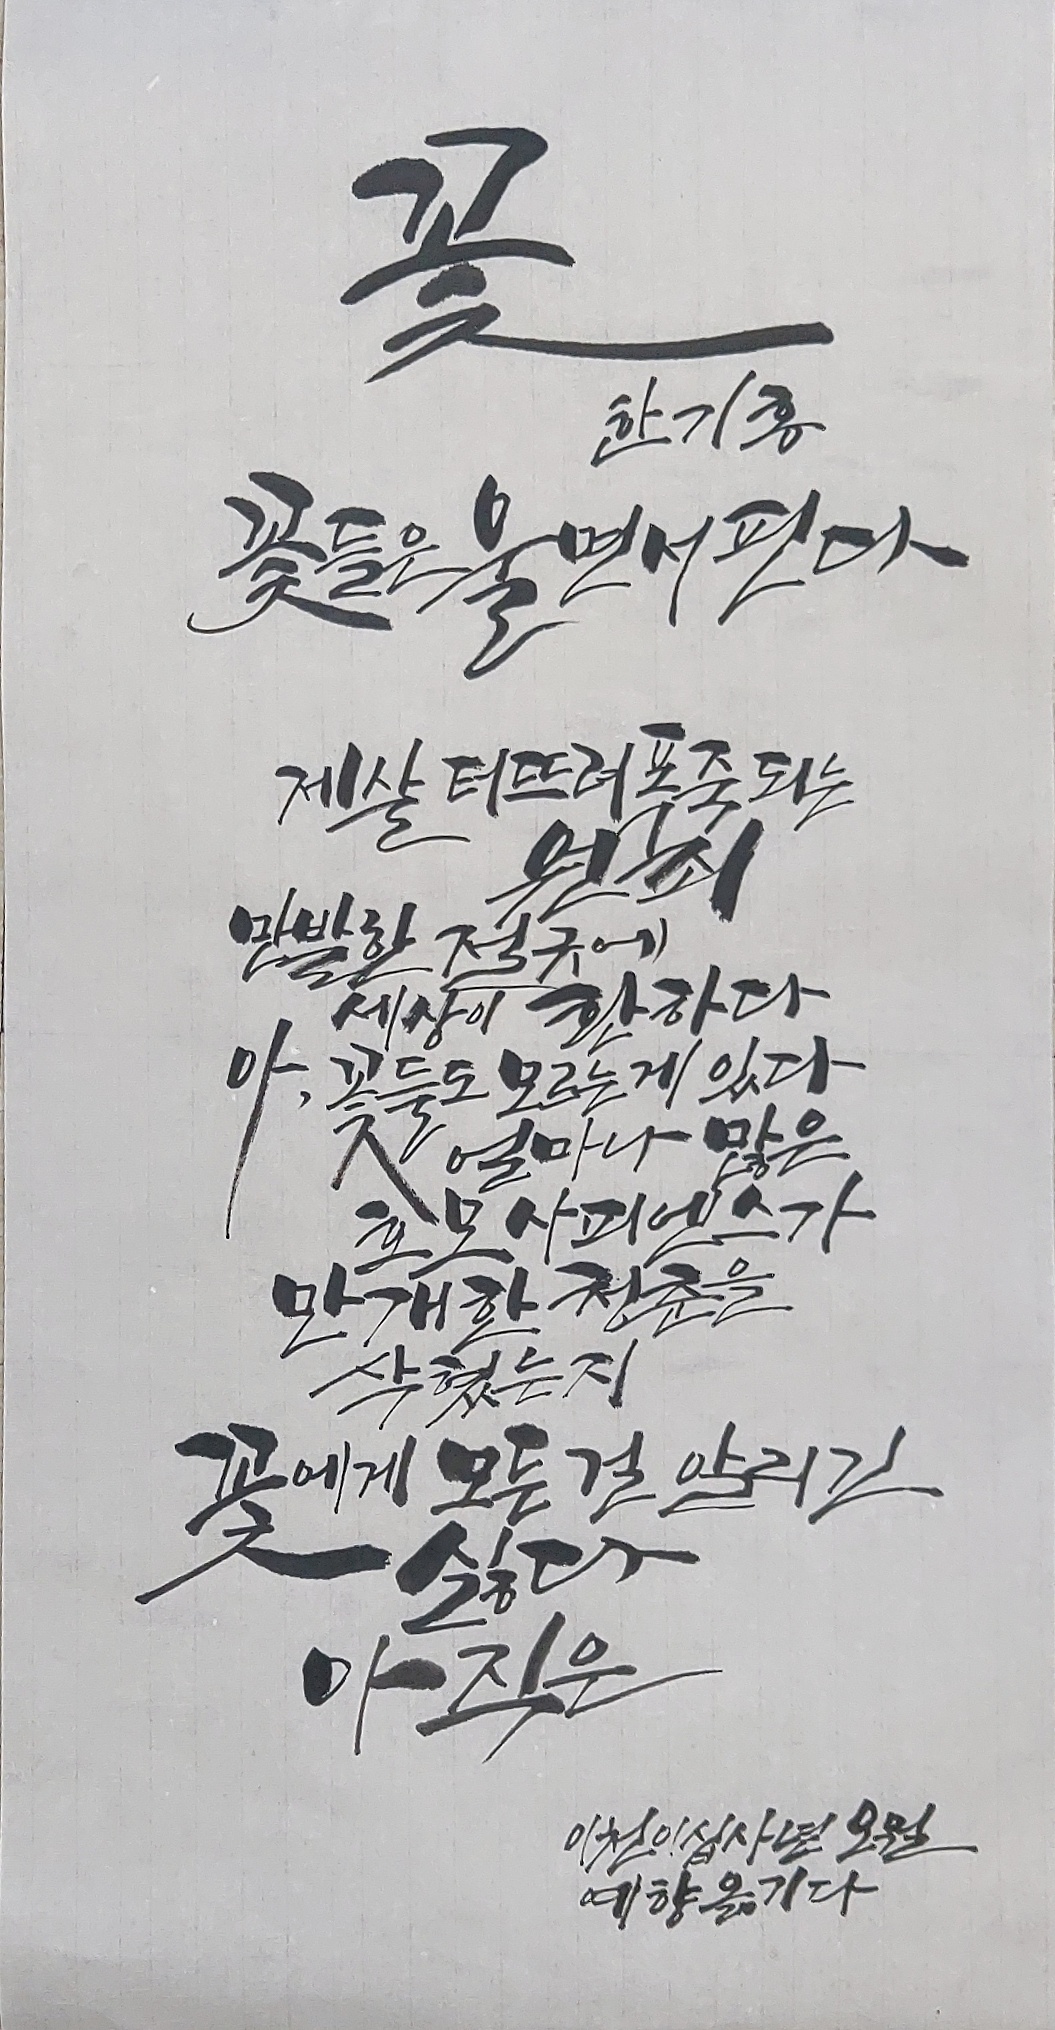 꽃
한기홍
꽃들은 울면서 핀다
제살 터뜨려 폭죽되는
원죄
만발한 절규에
세상이 환하다
아, 꽃들도 모르는게 있다
얼마나 많은
호모사피엔스가
만개한 청춘을
삭혔는지
꽃에게 모든걸 알리긴
싫다
아직은
이천이십사년 오월
예향 옮기다